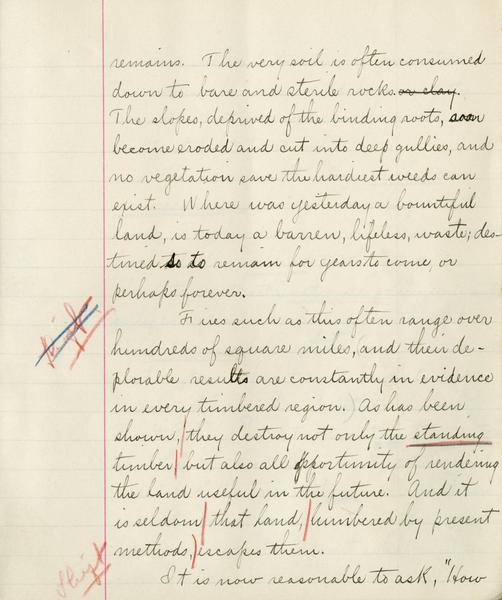 remains. The very soil is often consumed
down to bare and sterile rocks or clay.
The slopes, deprived of the binding roots, soon
become eroded and cut into deep gullies, and
no vegetation save the hardiest weeds can
exist. Where was yesterday a bountiful
land, is today a barren, lifeless, waste; des-
tined so to remain for years to come, or
perhaps forever.
Fires such as this often range over
hundreds of square miles, and their de-
plorable results are constantly in evidence
in every timbered region.) As has been
shown, they destroy not only the standing
timber but also all opportunity of rendering
the land useful in the future. And it
is seldom that land, lumbered by present
methods, escapes them.
It is now reasonable to ask, "How